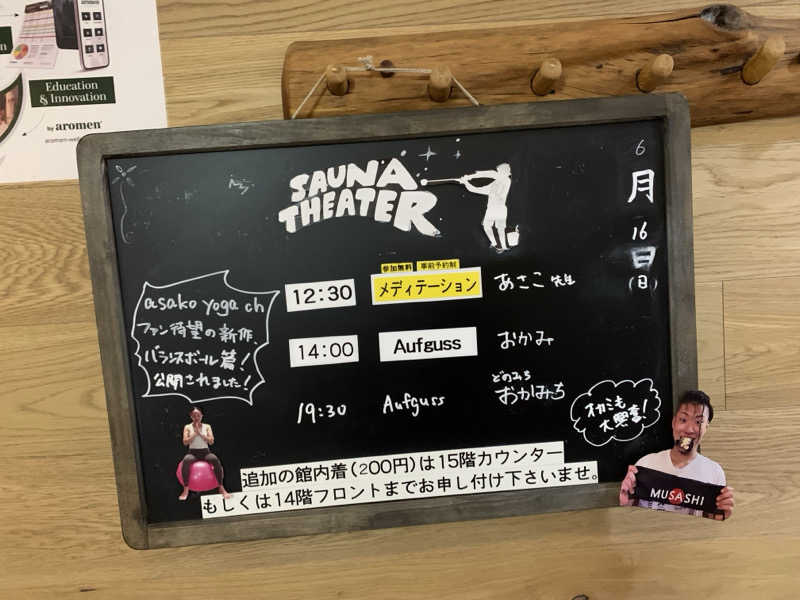 Education
& Innovation
by aromen
SAUNA
THEATER
6
月
16
日
(日)
参加無料 事前予約制
12:30 メディテーション あさこ 先生
14:00 Aufguss おかみ
どのみち
19:30 Aufguss おかみち
asako yoga ch
ファン待望の新作、
バランスボール篇!
公開されました!
オカミも
大興奮!
MUSASHI
追加の館内着(200円)は15階カウンター
もしくは14階フロントまでお申し付け下さいませ。